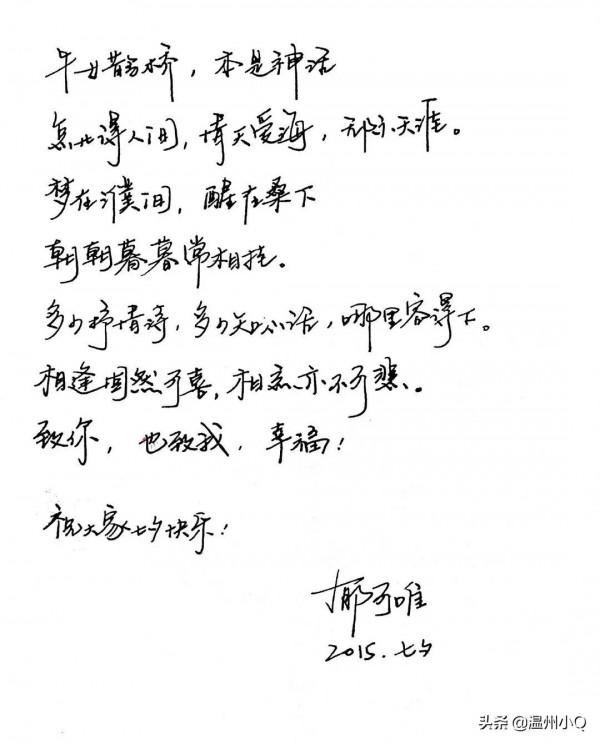 牛女鹊桥，本是神话
怎比得人间，情天爱海，天涯。
梦在濮间，醒在桑下
朝朝暮暮常相挂。
多少抒情诗，多少知心话，哪里容得下。
相逢固然可喜，相亦不可悲。
致你，也致我，幸福！
祝大家七夕快乐！
郁可唯
2015.七夕
头条 @温州小Q